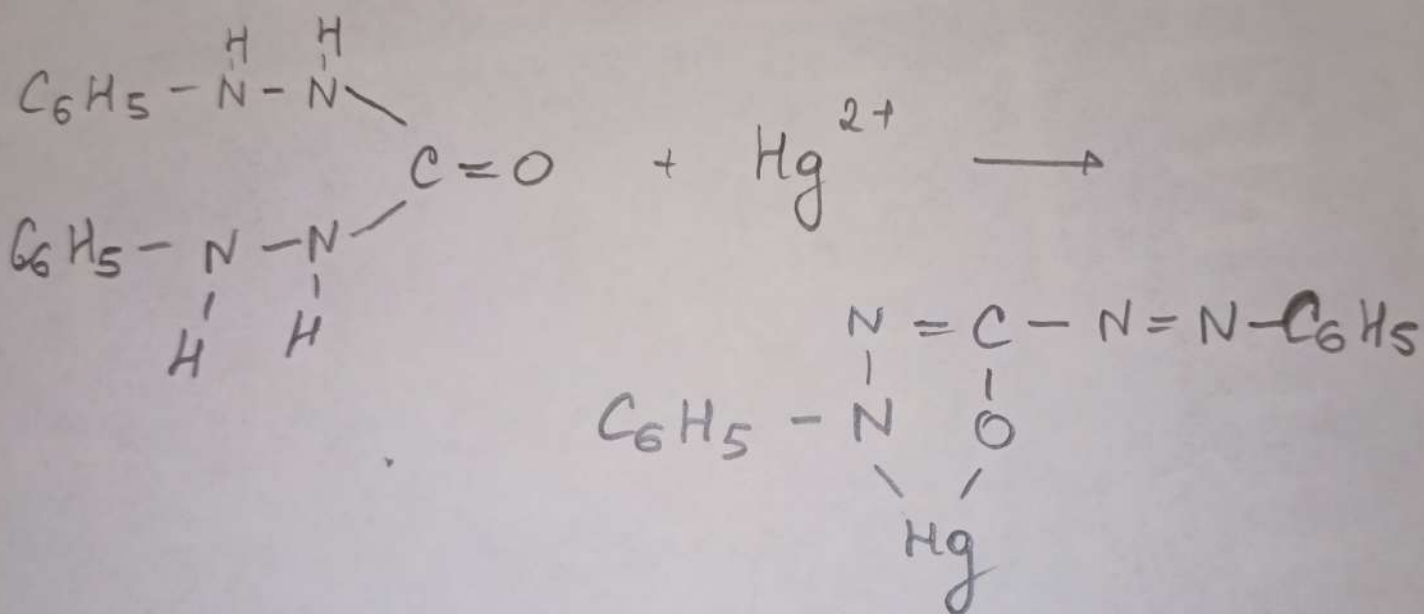 H H
C6H5 - N - N
C = O + Hg 2+ →
C6H5 - N - N
H H
N = C - N = N - C6H5
C6H5 - N O
Hg